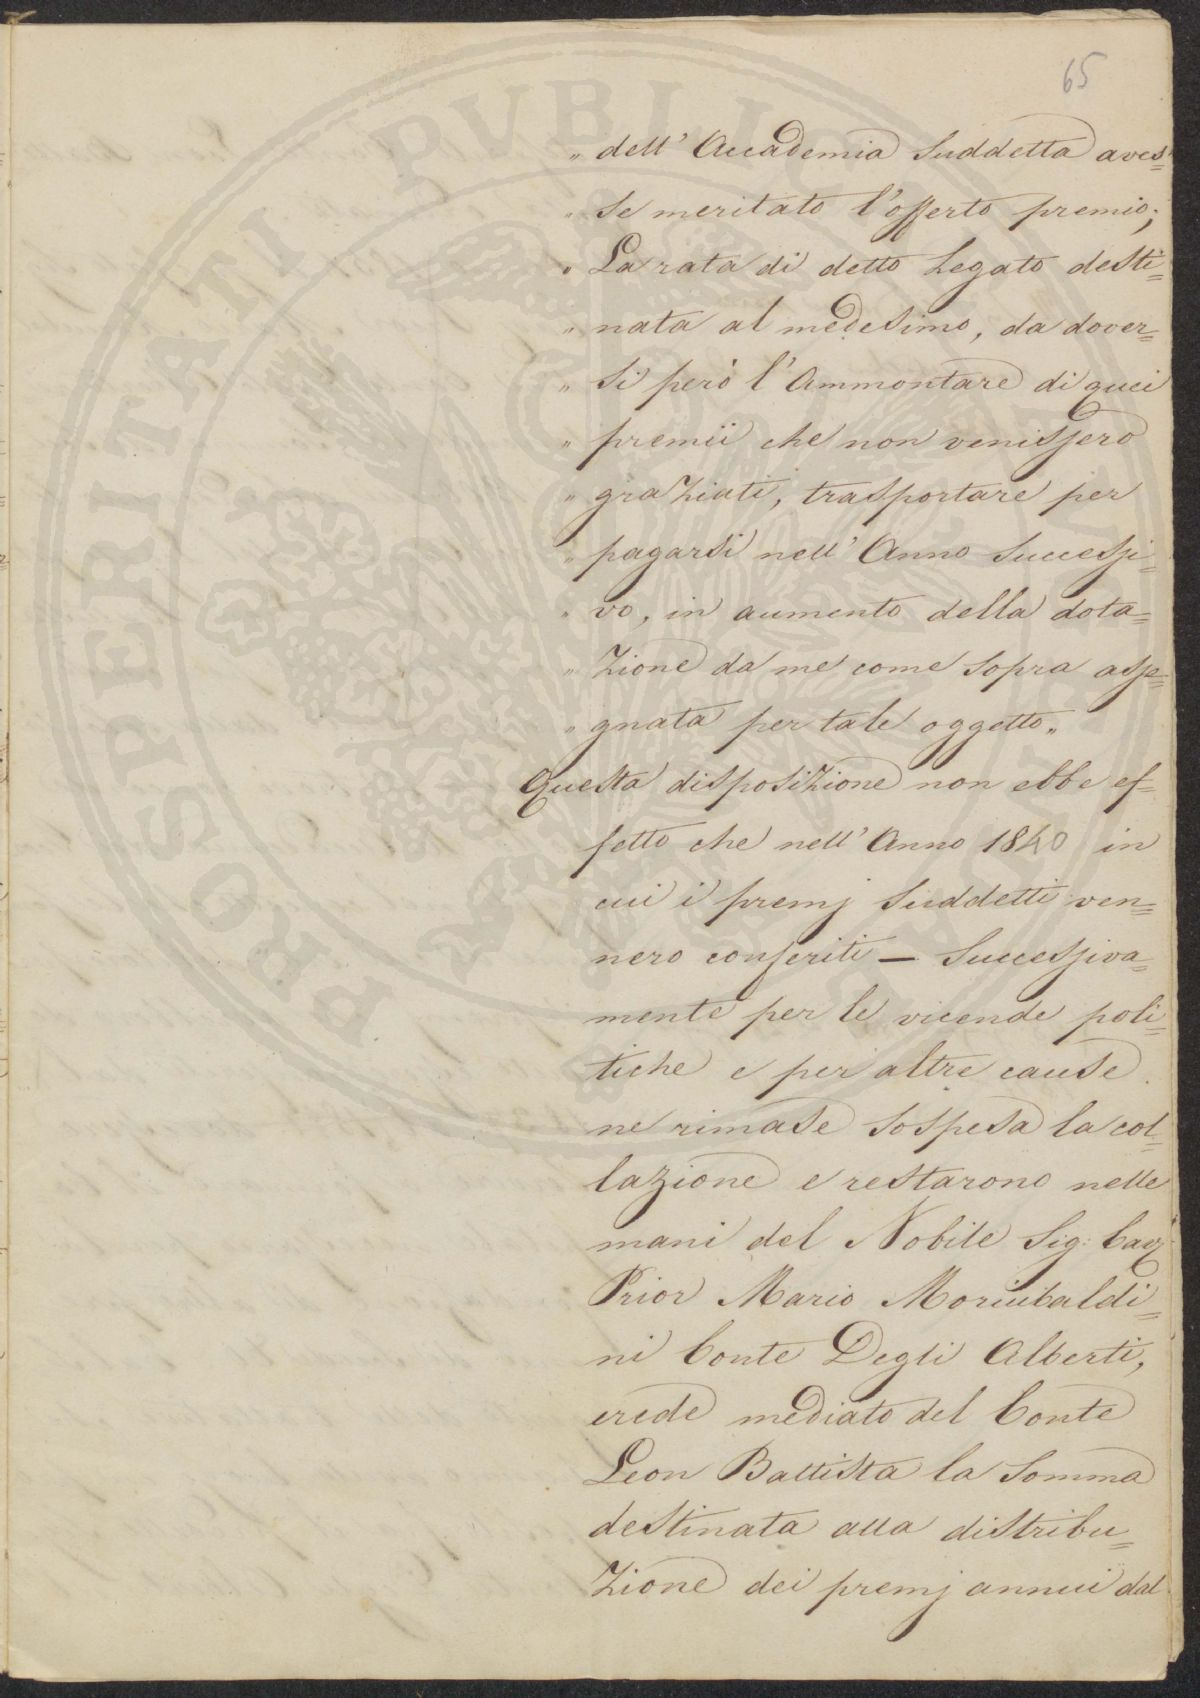 65
„ dell' Accademia Suddetta aves=
„ se meritato l'offerto premio;
„ La rata di detto Legato desti=
„ nata al medesimo, da dover=
„ si però l'Ammontare di quei
„ premii che non venissero
„ graziati, trasportare per
„ pagarsi nell'Anno Successi=
„ vo, in aumento della dota=
„ zione da me come Sopra asse=
„ gnata per tale oggetto„
Questa disposizione non ebbe ef=
fetto che nell'Anno 1840 in
cui i premj Suddetti ven=
nero conferiti — Successiva=
mente per le vicende poli=
tiche e per altre cause
ne rimase Sospesa la col=
lazione e restarono nelle
mani del Nobile Sig: Cav:
Prior Mario Moriubaldi=
ni Conte Degli Alberti,
erede mediato del Conte
Leon Battista la Somma
destinata alla distribu=
zione dei premj annui dal
PROSPERITATI PVBLICAE